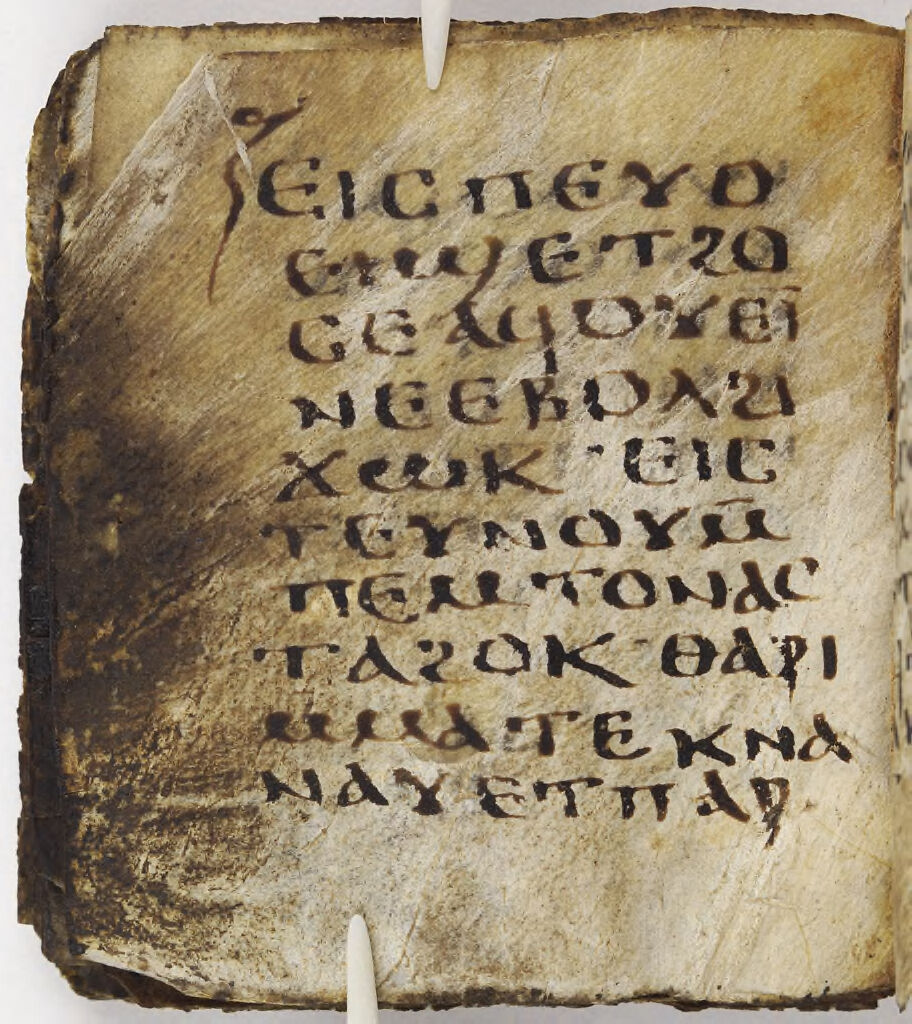 ⲉⲓⲥⲡⲉⲩⲟ
ⲉⲓϣⲉⲧϩⲟ
ⲥⲉⲁϥⲟⲩⲉⲓ̄
ⲛⲉⲉⲃⲟⲗϩⲓ
ϫⲱⲕ·ⲉⲓⲥ
ⲧⲉⲩⲛⲟⲩⲙ̄
ⲡⲉⲙⲧⲟⲛⲁⲥ
ⲧⲁϩⲟⲕ·ⲑⲁⲣⲓ
ⲙⲙⲁⲧⲉⲕⲛⲁ
ⲛⲁⲩⲉⲧⲡⲁⲣ